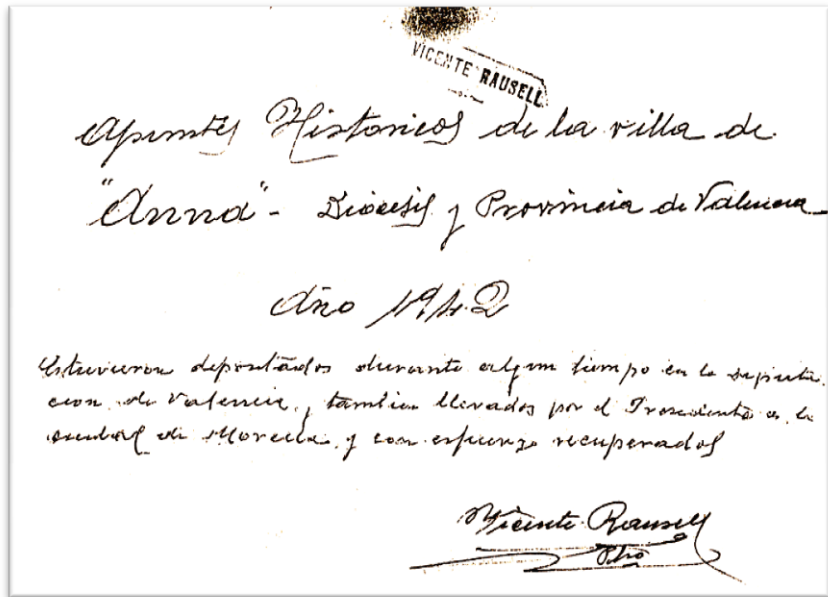 VICENTE RAUSELL
Apuntes Historicos de la villa de
"Anna" - Diocesis y Provincia de Valencia
Año 1942
Estuvieron depositados durante algun tiempo en la diputa
cion de Valencia, y tambien llevados por el Presidente a la
ciudad de Morella y con esfuerzo recuperados
Vicente Rausell
Pbro